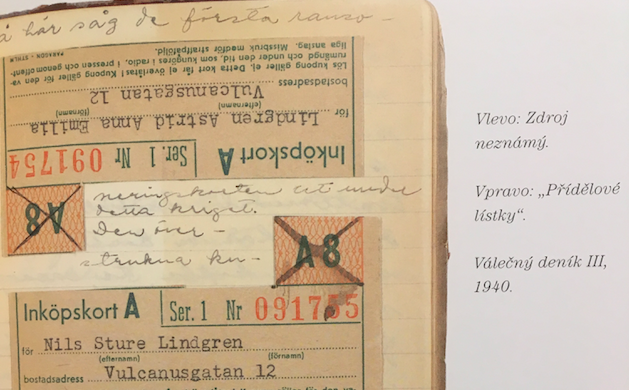 så här såg de första ranso-
Inköpskort A Ser. 1 Nr 091754
för Lindgren Astrid Anna Emilia
(efternamn) (förnamn)
bostadsadress Vulcanusgatan 12
Lös kupong gäller ej. Detta kort får ej överlåtas! Kupong gäller för den va-
rumängd och under den tid, som kungöres i radio, i pressen och genom offent-
liga anslag. Missbruk medför straffpåföljd.
PARAGON - STHLM
A8
neringskorten ut under
detta kriget.
Den över-
strukna ku-
A8
Inköpskort A Ser. 1 Nr 091755
för Nils Sture Lindgren
(efternamn) (förnamn)
bostadsadress Vulcanusgatan 12
Vlevo: Zdroj
neznámý.
Vpravo: „Přídělové
lístky“.
Válečný deník III,
1940.